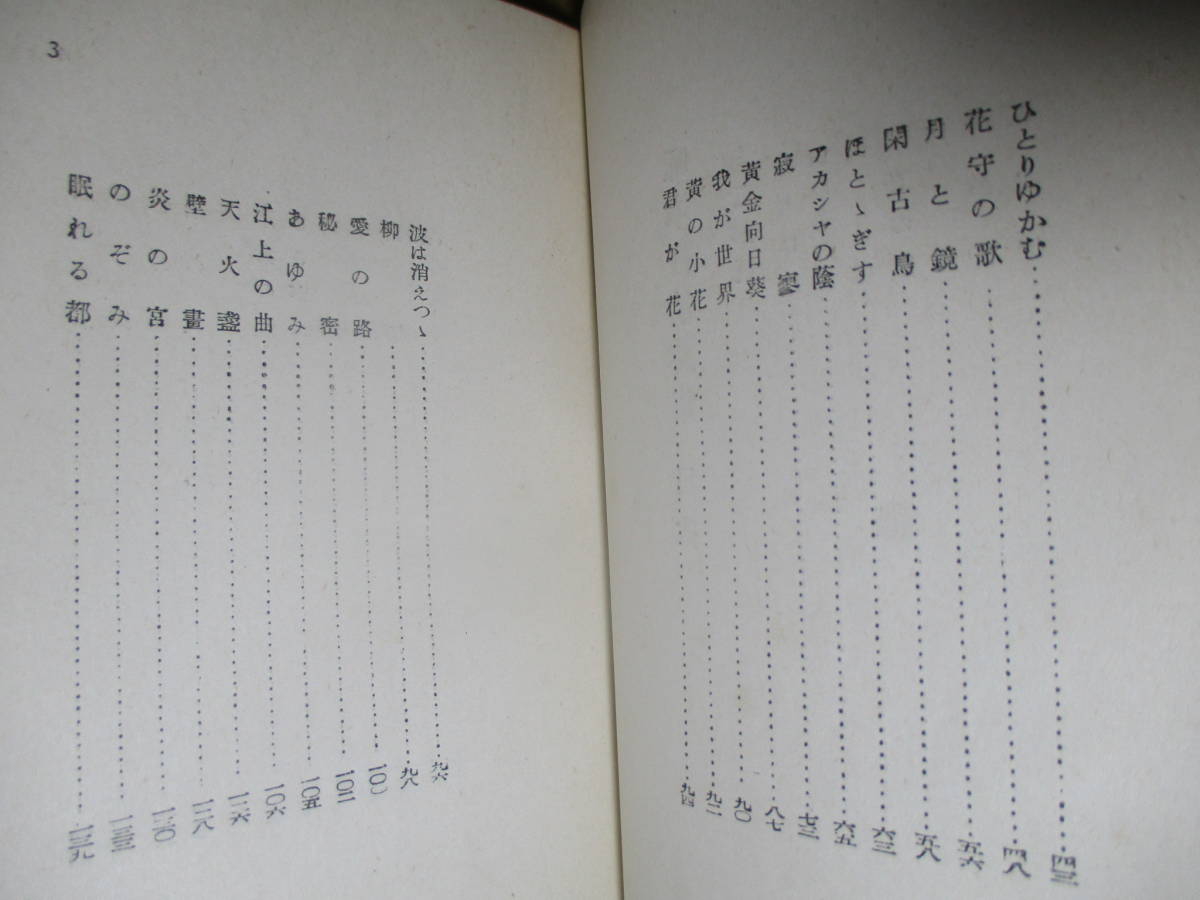 ひとりゆかむ……四三
花守の歌……四八
月と鏡……五六
閑古鳥……五八
ほとゝぎす……六三
アカシヤの蔭……六五
寂寥……七三
黄金向日葵……八七
我が世界……九〇
黄の小花……九二
君が花……九四
波は消えつゝ……九六
柳……九八
愛の路……
秘密……一〇二
あゆみ……一〇五
江上の曲……一〇六
天火盞……
壁畫……
炎の宮……
のぞみ……
眠れる都……
3